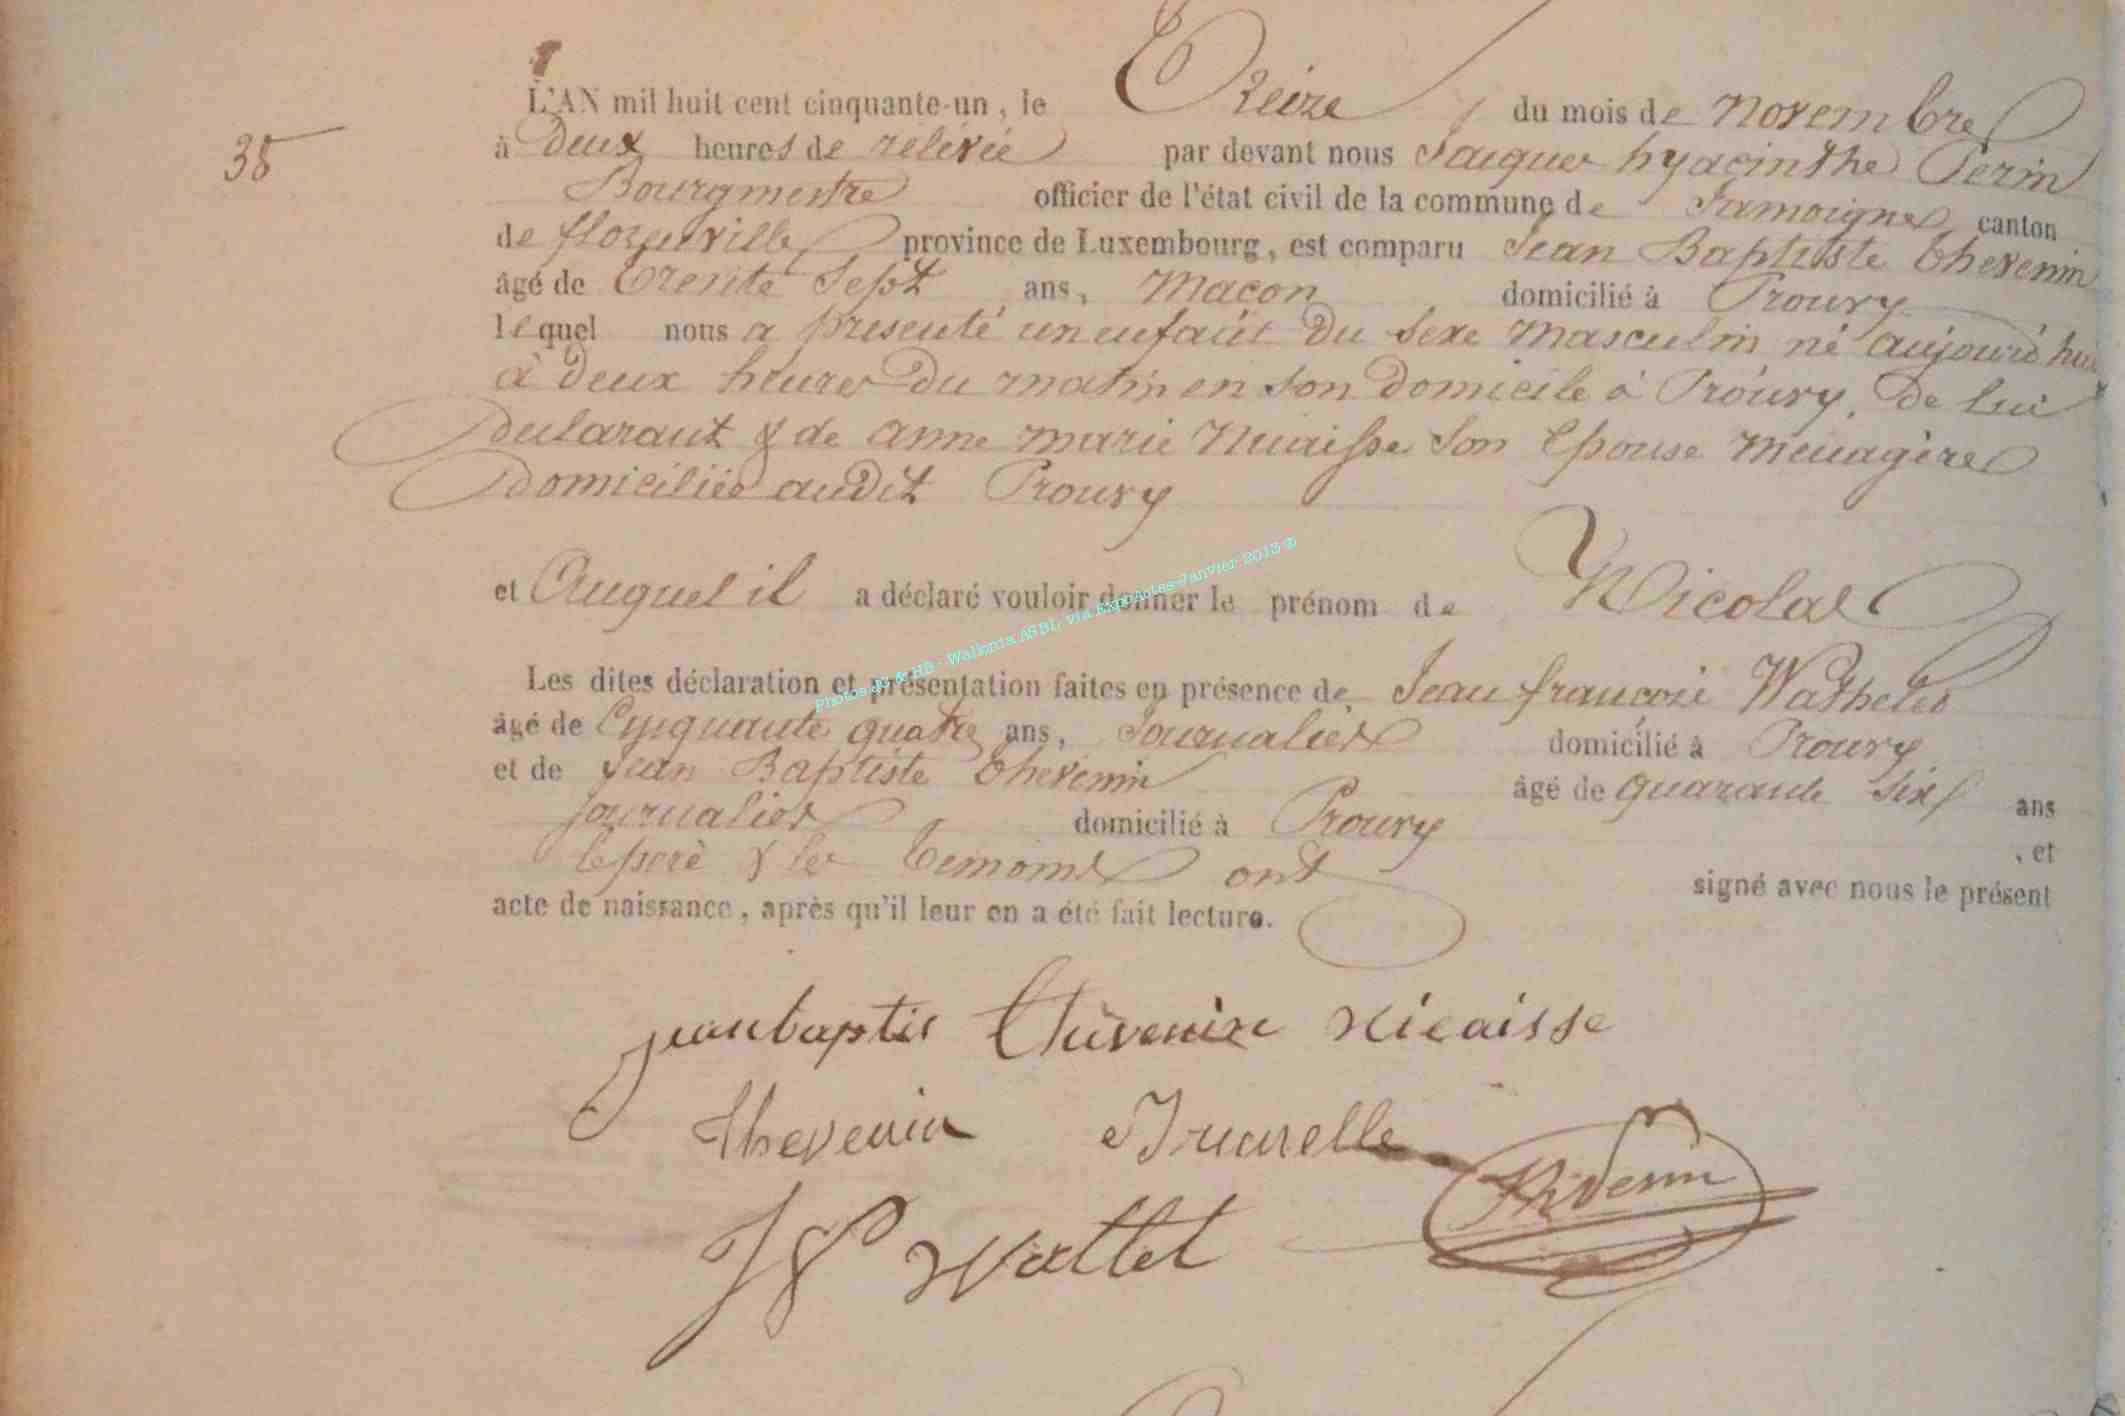 L'AN mil huit cent cinquante-un, le Treize du mois de Novembre
38
à Deux heures de relévée par devant nous Jacques hyacinthe Perin
Bourgmestre officier de l'état civil de la commune de Jamoigne canton
de florenville province de Luxembourg, est comparu Jean Baptiste thevenin
âgé de trente Sept ans, Macon domicilié à Prouvy
lequel nous a presenté un enfant du sexe masculin né aujourd'hui
à deux heures du matin en son domicile à Prouvy, de lui
declarant & de anne marie Nicaisse son Epouse menagère
domiciliée audit Prouvy
et Auquel il a déclaré vouloir donner le prénom de Nicolas
Photos JG & HB - Wallonia ASBL, via ExpoActes-Janvier 2013 ©
Les dites déclaration et présentation faites en présence de Jean françois Wathelet
âgé de Cinquante quatre ans, Journalier domicilié à Prouvy
et de Jean Baptiste thevenin âgé de quarante Six ans
journalier domicilié à Prouvy , et
le pere & les temoins ont signé avec nous le présent
acte de naissance, après qu'il leur en a été fait lecture.
jean baptis Nicaisse
thevenin
J Wattlet